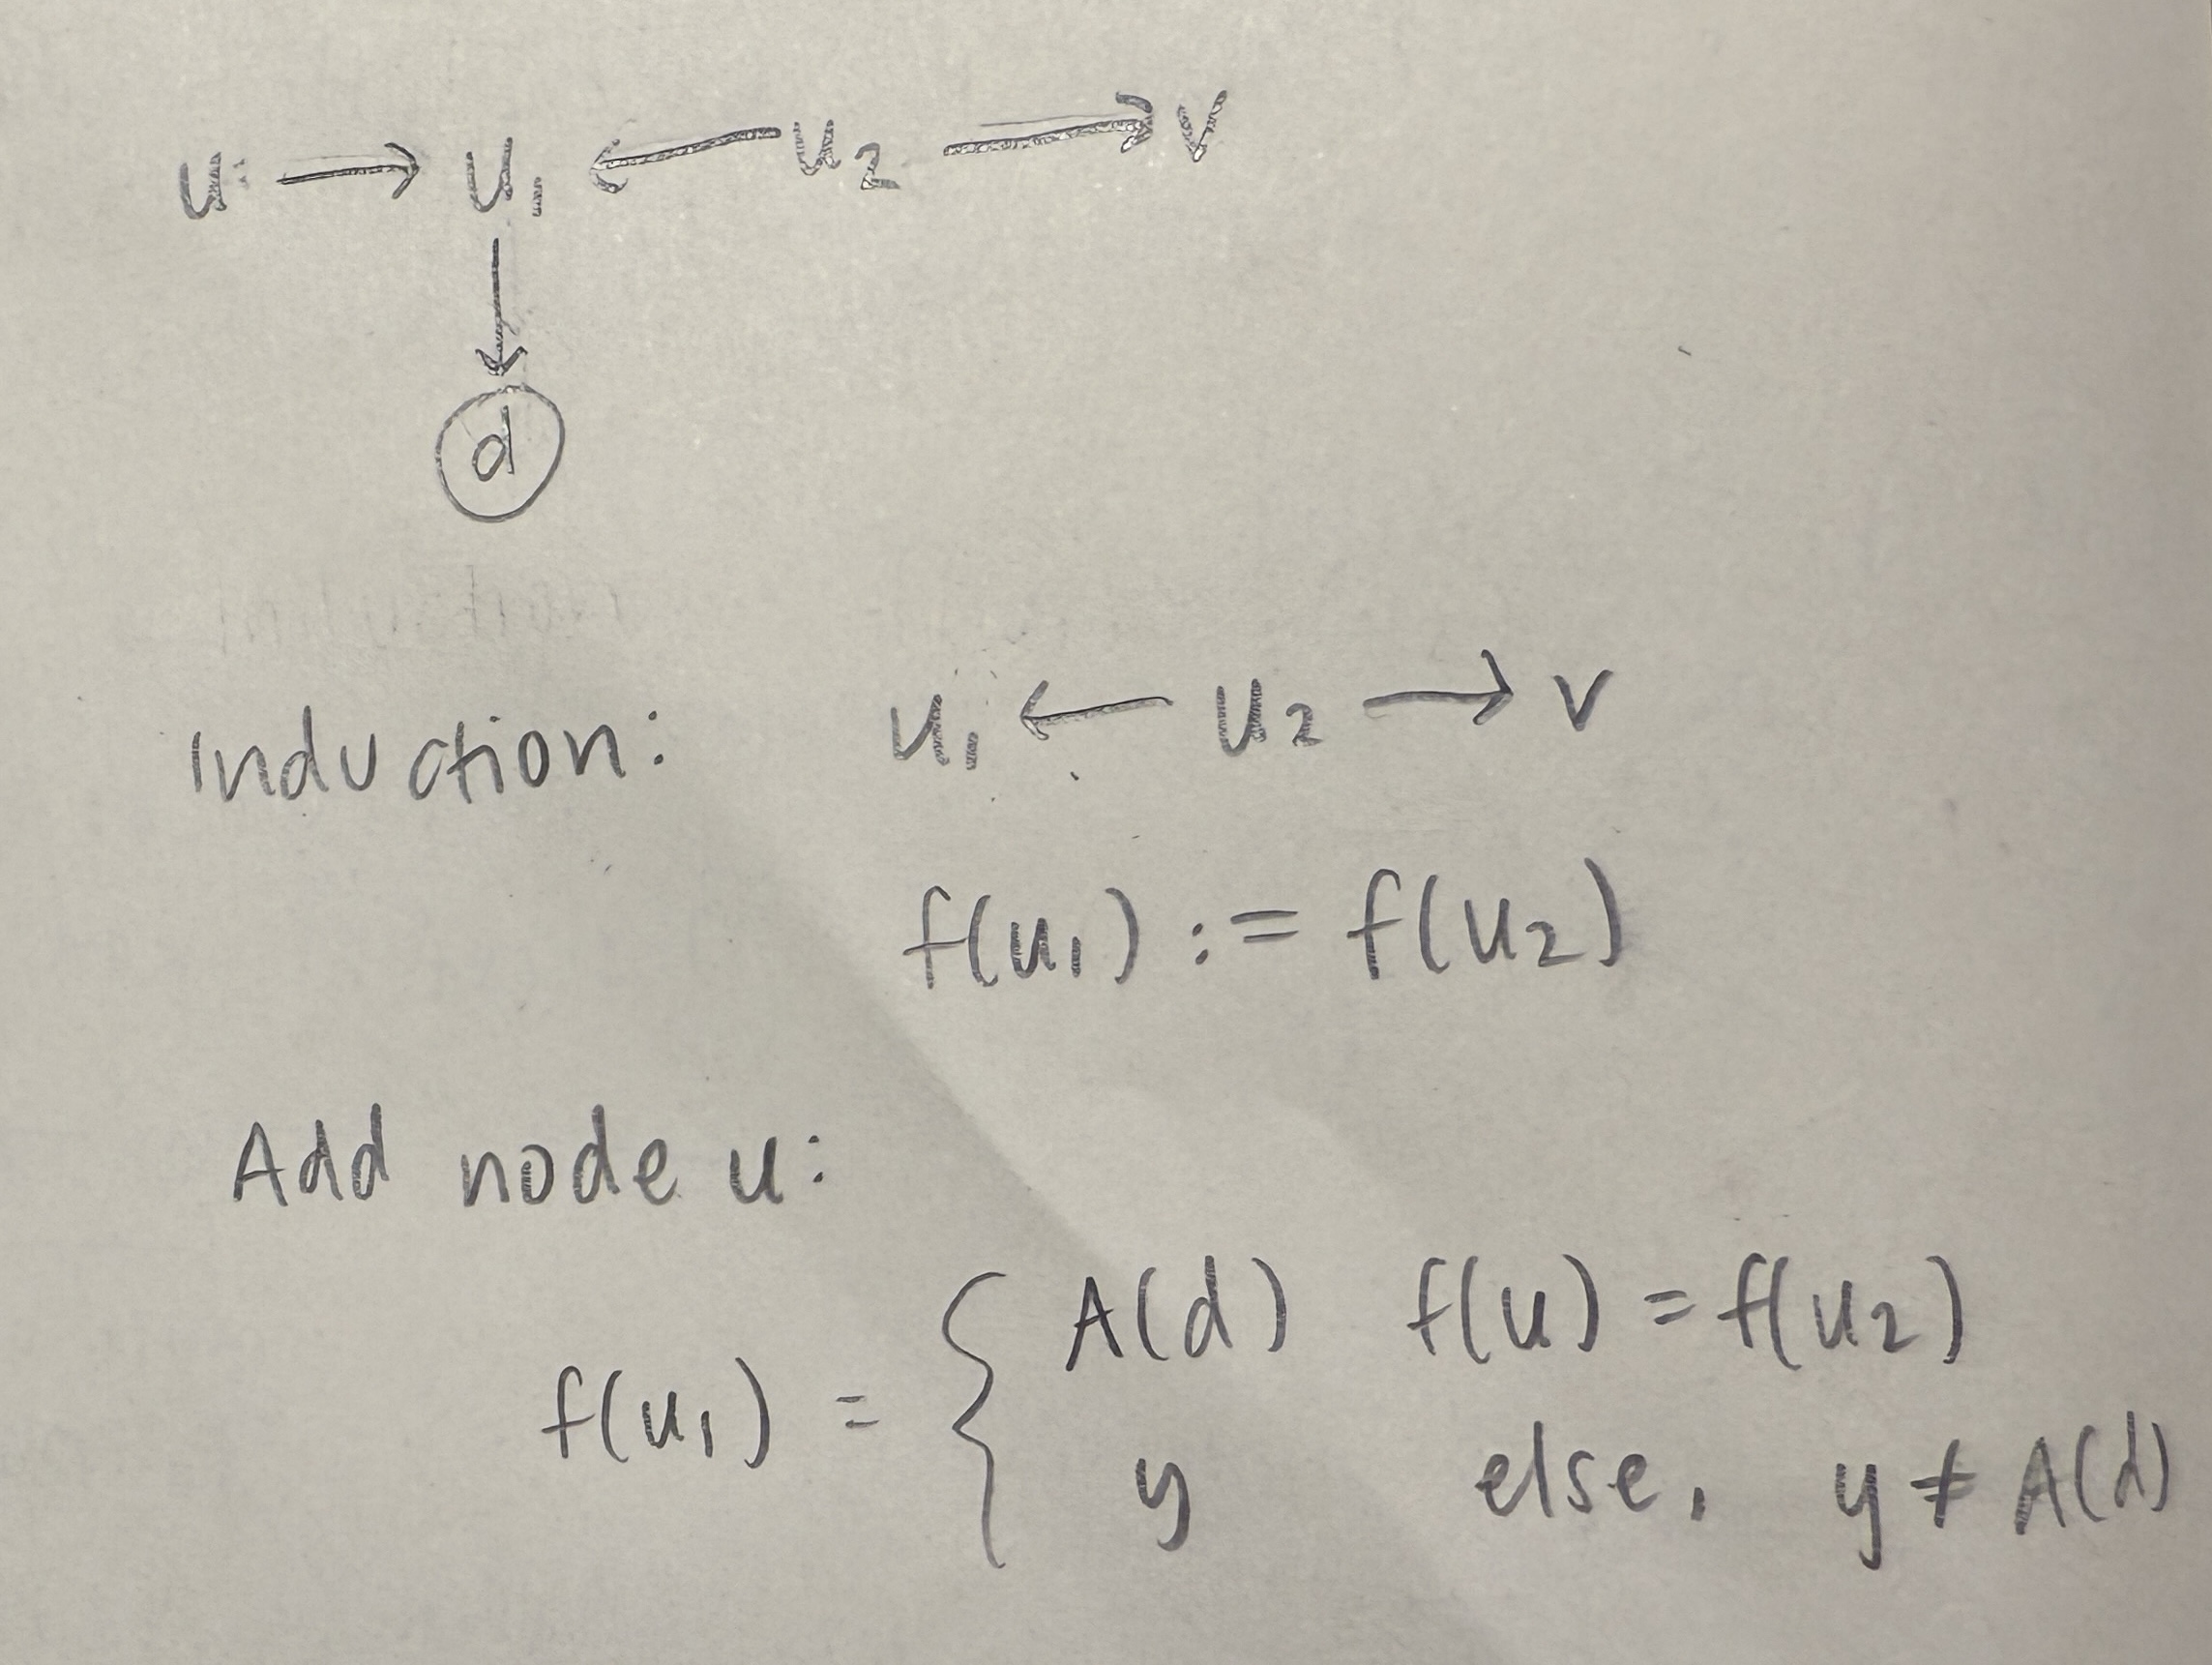 u → u₁ ← u₂ → v
↓
d
Induction: u₁ ← u₂ → v
f(u₁) := f(u₂)
Add node u:
f(u₁) = { A(d) f(u) = f(u₂)
y else, y ≠ A(d)